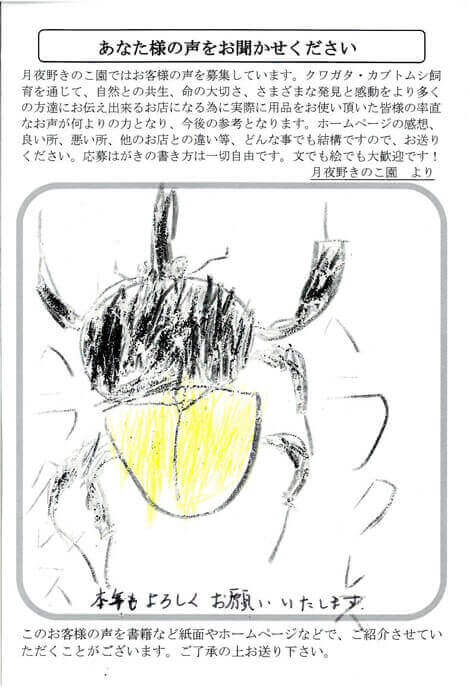 あなた様の声をお聞かせください
月夜野きのこ園ではお客様の声を募集しています。クワガタ・カブトムシ飼
育を通じて、自然との共生、命の大切さ、さまざまな発見と感動をより多く
の方達にお伝え出来るお店になる為に実際に用品をお使い頂いた皆様の率直
なお声が何よりの力となり、今後の参考となります。ホームページの感想、
良い所、悪い所、他のお店との違い等、どんな事でも結構ですので、お送り
ください。応募はがきの書き方は一切自由です。文でも絵でも大歓迎です！
月夜野きのこ園　より
ヘラクレス
ヘラクレス
本年もよろしくお願いいたします
このお客様の声を書籍など紙面やホームページなどで、ご紹介させてい
ただくことがございます。ご了承の上お送り下さい。